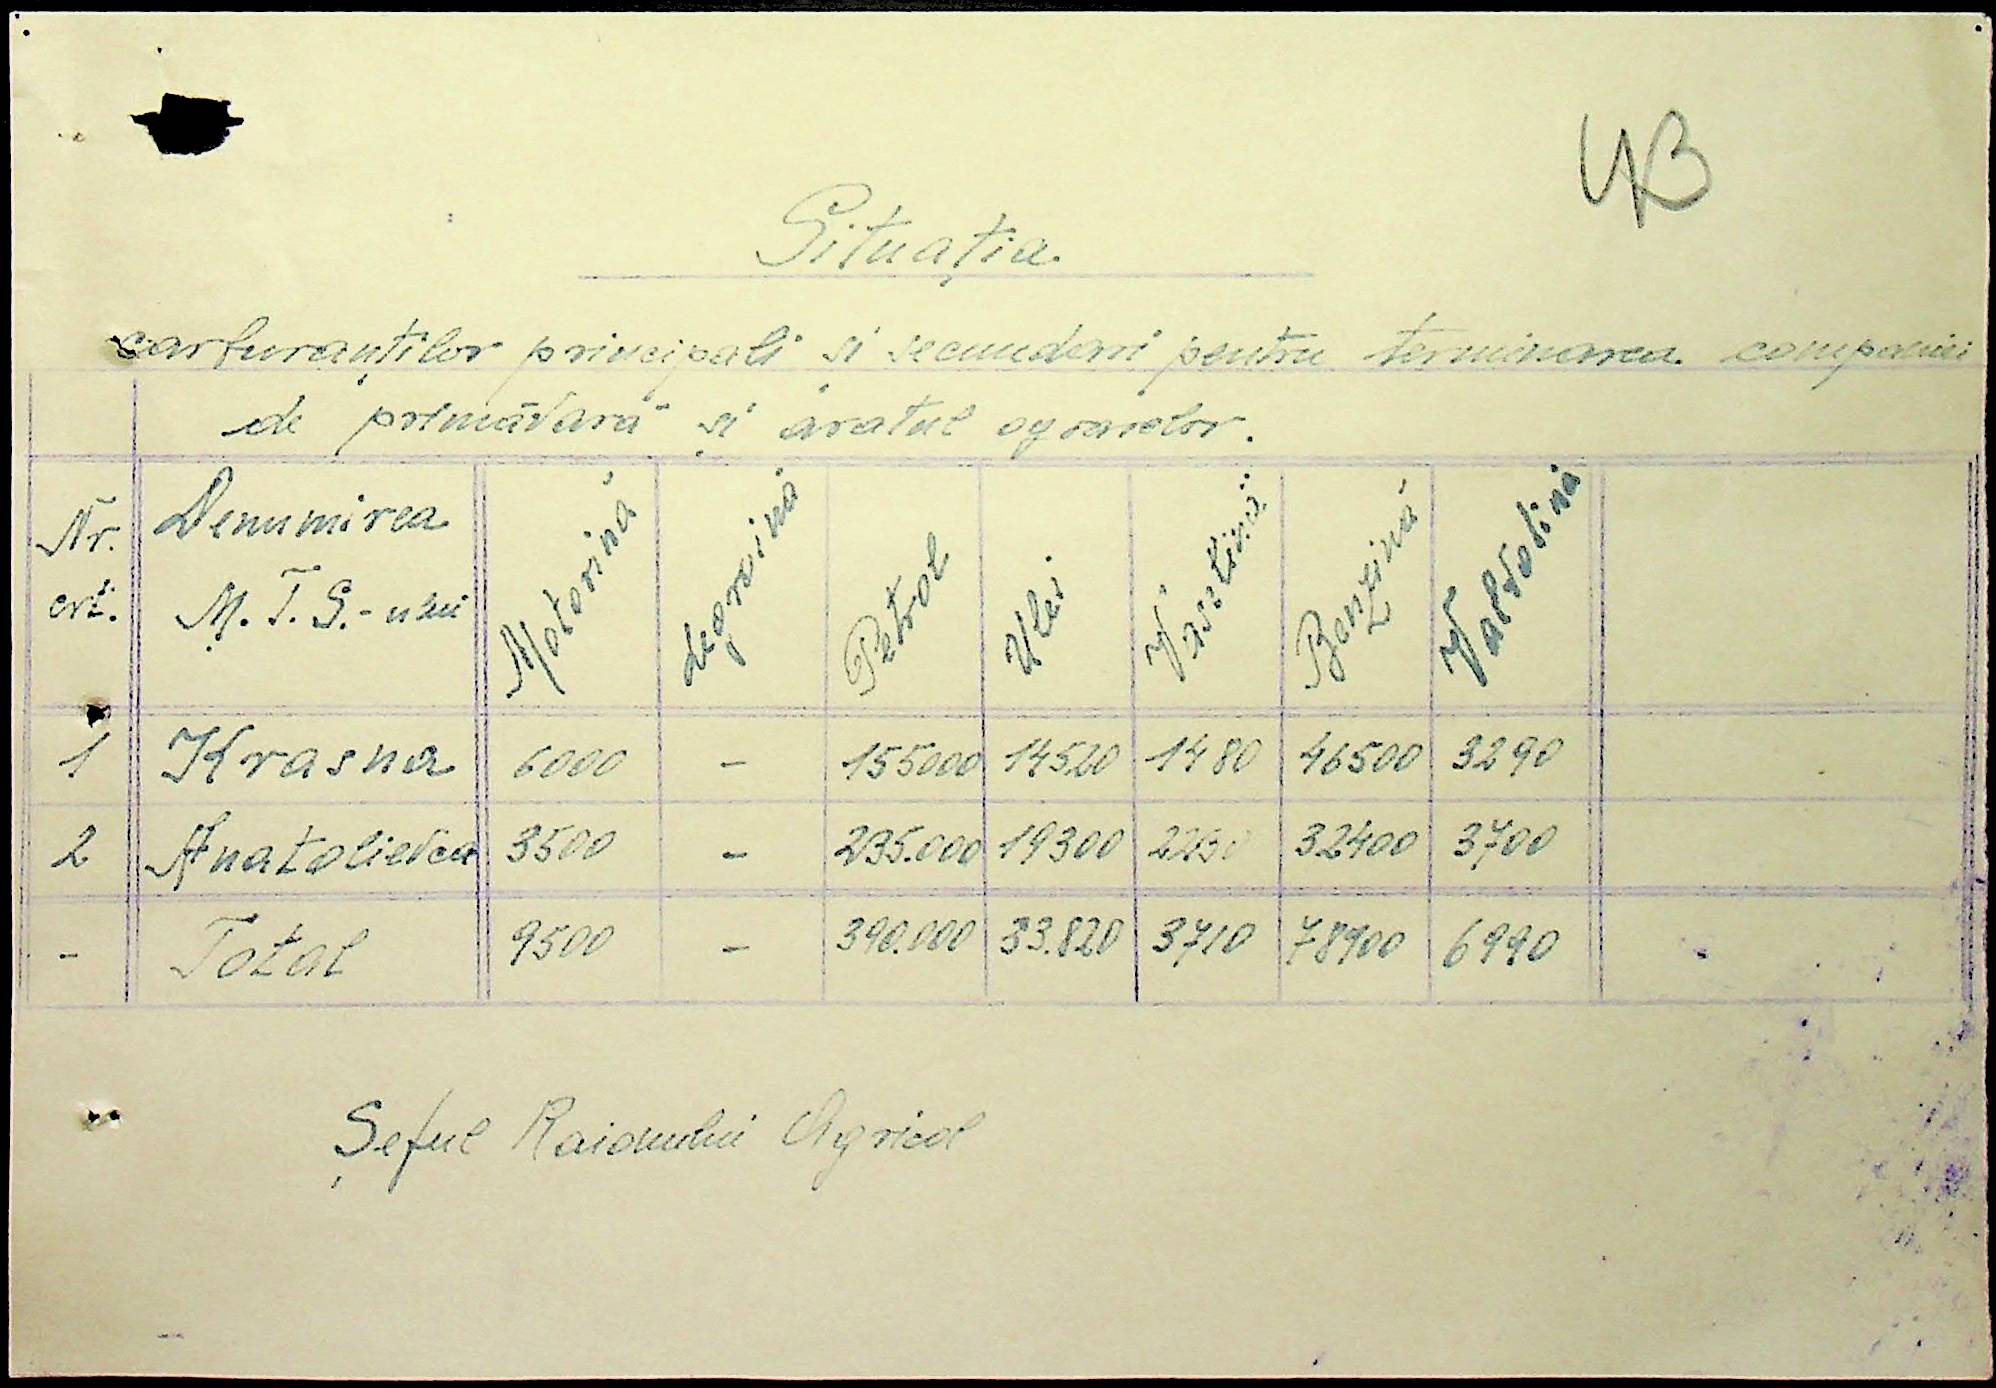 43
Situația
carfuranților principali si secundari pentru terminarea companiei
de primăvară și aratul ogoarelor.
Nr. crt. Denumirea M.T.S.-ului Motorină Legroină Petrol Ulei Vaselină Benzină Valvolină
1 Krasna 6000 - 155000 14520 1480 46500 3290
2 Anatolievca 3500 - 235.000 19300 2230 32400 3700
- Total 9500 - 390.000 33.820 3710 78900 6990
Șeful Raionului Agricol